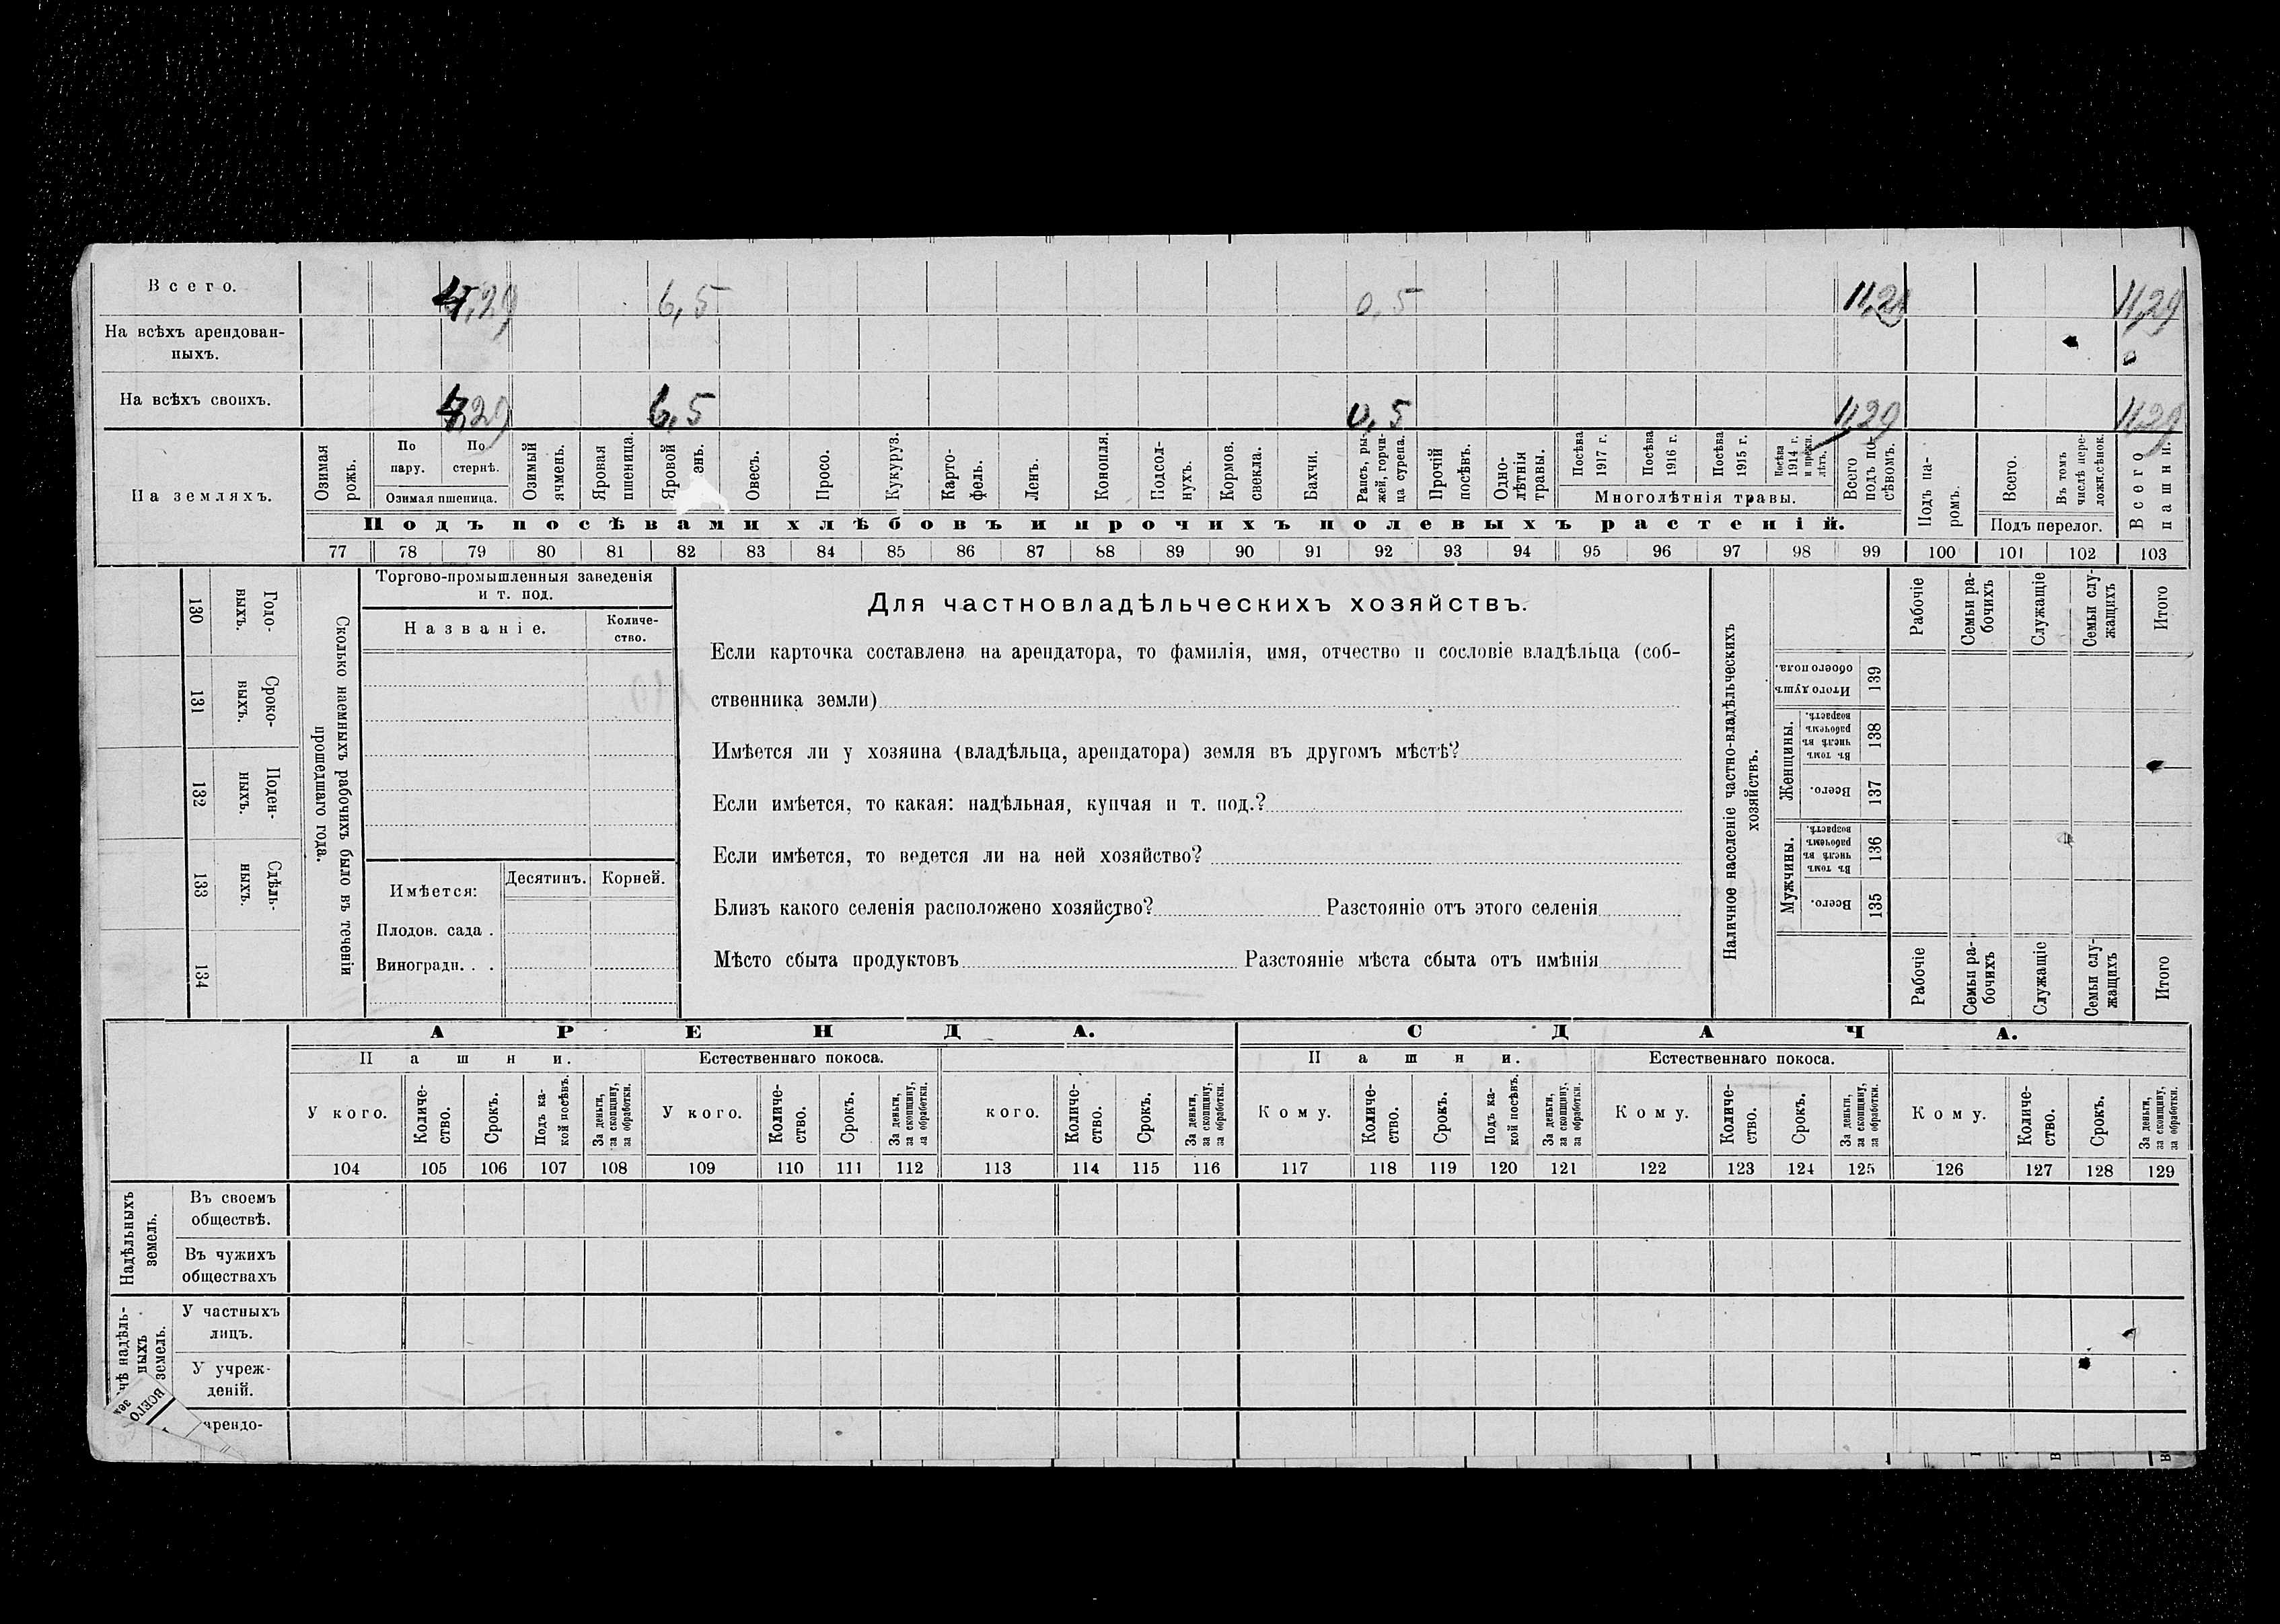 Всего. 4,29 6,5 0,5 11,29 11,29
На всѣхъ арендован-
ныхъ.
На всѣхъ своихъ. 4,29 6,5 0,5 11,29 11,29
На земляхъ.
Озимая рожь.
По пару.
По стернѣ.
Озимая пшеница.
Озимый ячмень.
Яровая пшеница.
Яровой
Овесъ.
Просо.
Кукуруз.
Карто-
фель.
Ленъ.
Конопля.
Подсол-
нухъ.
Кормов.
свекла.
Бахчи.
Рапсъ, ры-
жей, горчи-
ца сурепа.
Прочій
посѣвъ.
Одно-
лѣтнія
травы.
Посѣва
1917 г.
Посѣва
1916 г.
Посѣва
1915 г.
Посѣва
1914 г.
и прежн.
лѣтъ.
Многолѣтнія травы.
Всего
подъ по-
сѣвомъ.
Подъ па-
ромъ.
Всего.
Въ томъ
числѣ пере-
ложн.сѣнок.
Подъ перелог.
Всего
пашни.
Подъ посѣвами хлѣбовъ и прочихъ полевыхъ растеній.
77 78 79 80 81 82 83 84 85 86 87 88 89 90 91 92 93 94 95 96 97 98 99 100 101 102 103
130 Годо-
выхъ.
131 Сроко-
выхъ.
132 Поден-
ныхъ.
133 Сдѣль-
ныхъ.
134
Сколько наемныхъ рабочихъ было въ теченіи
прошедшаго года.
Торгово-промышленныя заведенія
и т. под.
Названіе.
Количе-
ство.
Имѣется:
Десятинъ.
Корней.
Плодов. сада .
Виноградн. . .
Для частновладѣльческихъ хозяйствъ.
Если карточка составлена на арендатора, то фамилія, имя, отчество и сословіе владѣльца (соб-
ственника земли)
Имѣется ли у хозяина (владѣльца, арендатора) земля въ другомъ мѣстѣ?
Если имѣется, то какая: надѣльная, купчая и т. под.?
Если имѣется, то ведется ли на ней хозяйство?
Близъ какого селенія расположено хозяйство? Разстояніе отъ этого селенія
Мѣсто сбыта продуктовъ Разстояніе мѣста сбыта отъ имѣнія
Наличное населеніе частно-владѣльческихъ
хозяйствъ.
Рабочіе
Семьи ра-
бочихъ
Служащіе
Семьи слу-
жащихъ
Итого
Итого душъ
обоего пола.
139
Женщины.
Въ томъ
числѣ въ
рабочемъ
возрастѣ.
138
Всего.
137
Мужчины.
Въ томъ
числѣ въ
рабочемъ
возрастѣ.
136
Всего.
135
Рабочіе
Семьи ра-
бочихъ
Служащіе
Семьи слу-
жащихъ
Итого
АРЕНДА. СДАЧА.
Пашни. Естественнаго покоса. Пашни. Естественнаго покоса.
У кого.
Количе-
ство.
Срокъ.
Подъ ка-
кой посѣвъ.
За деньги,
за скопщину,
за обработки.
У кого.
Количе-
ство.
Срокъ.
За деньги,
за скопщину,
за обработки.
кого.
Количе-
ство.
Срокъ.
За деньги,
за скопщину,
за обработки.
Кому.
Количе-
ство.
Срокъ.
Подъ ка-
кой посѣвъ.
За деньги,
за скопщину,
за обработки.
Кому.
Количе-
ство.
Срокъ.
За деньги,
за скопщину,
за обработки.
Кому.
Количе-
ство.
Срокъ.
За деньги,
за скопщину,
за обработки.
104 105 106 107 108 109 110 111 112 113 114 115 116 117 118 119 120 121 122 123 124 125 126 127 128 129
Надѣльныхъ
земель.
Въ своемъ
обществѣ.
Въ чужихъ
обществахъ
чѣ надѣль-
ныхъ
земель.
У частныхъ
лицъ.
У учреж-
деній.
ВСЕГО
арендо-